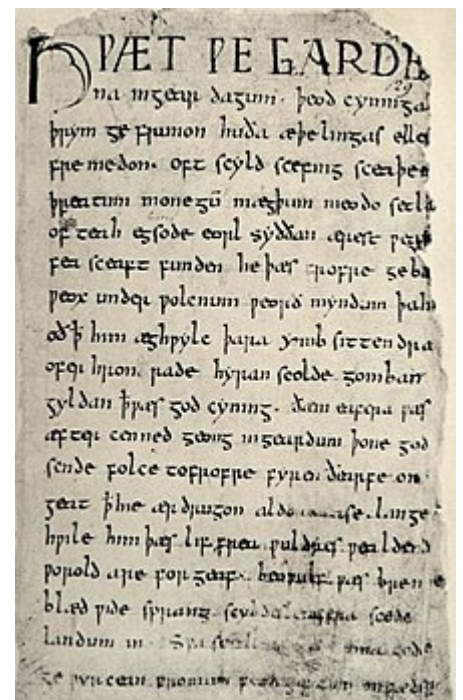 HǷÆT ǷE GARDE
na ingear dagum. þeod cyninga
þrym ge frunon huða æþelingas elle
fre medon. oft scyld scefing sceaþe
þreatum monegū mægþum meodo setla
of teah egsode eorl syððan ærest ƿear
fea sceaft funden he þæs frofre geba
ƿeox under ƿolcnum ƿeorð myndum þah
oð ꝥ him æghƿylc þara ymb sittendra
ofer hron rade hyran scolde gomban
gyldan ꝥ ƿæs god cyning. ðæm eafera ƿæs
æfter cenned geong ingeardum þone god
sende folce tofrofre fyren ðearfe on
geat ꝥ hie ær drugon aldor ase. lange
hƿile him þæs lif frea ƿuldres ƿealdend
ƿorold are for geaf. beoƿulf ƿæs breme
blæd ƿide sprang scyldes eafera scede
landum in. Sƿa guma gode
ge ƿyrcean fromum